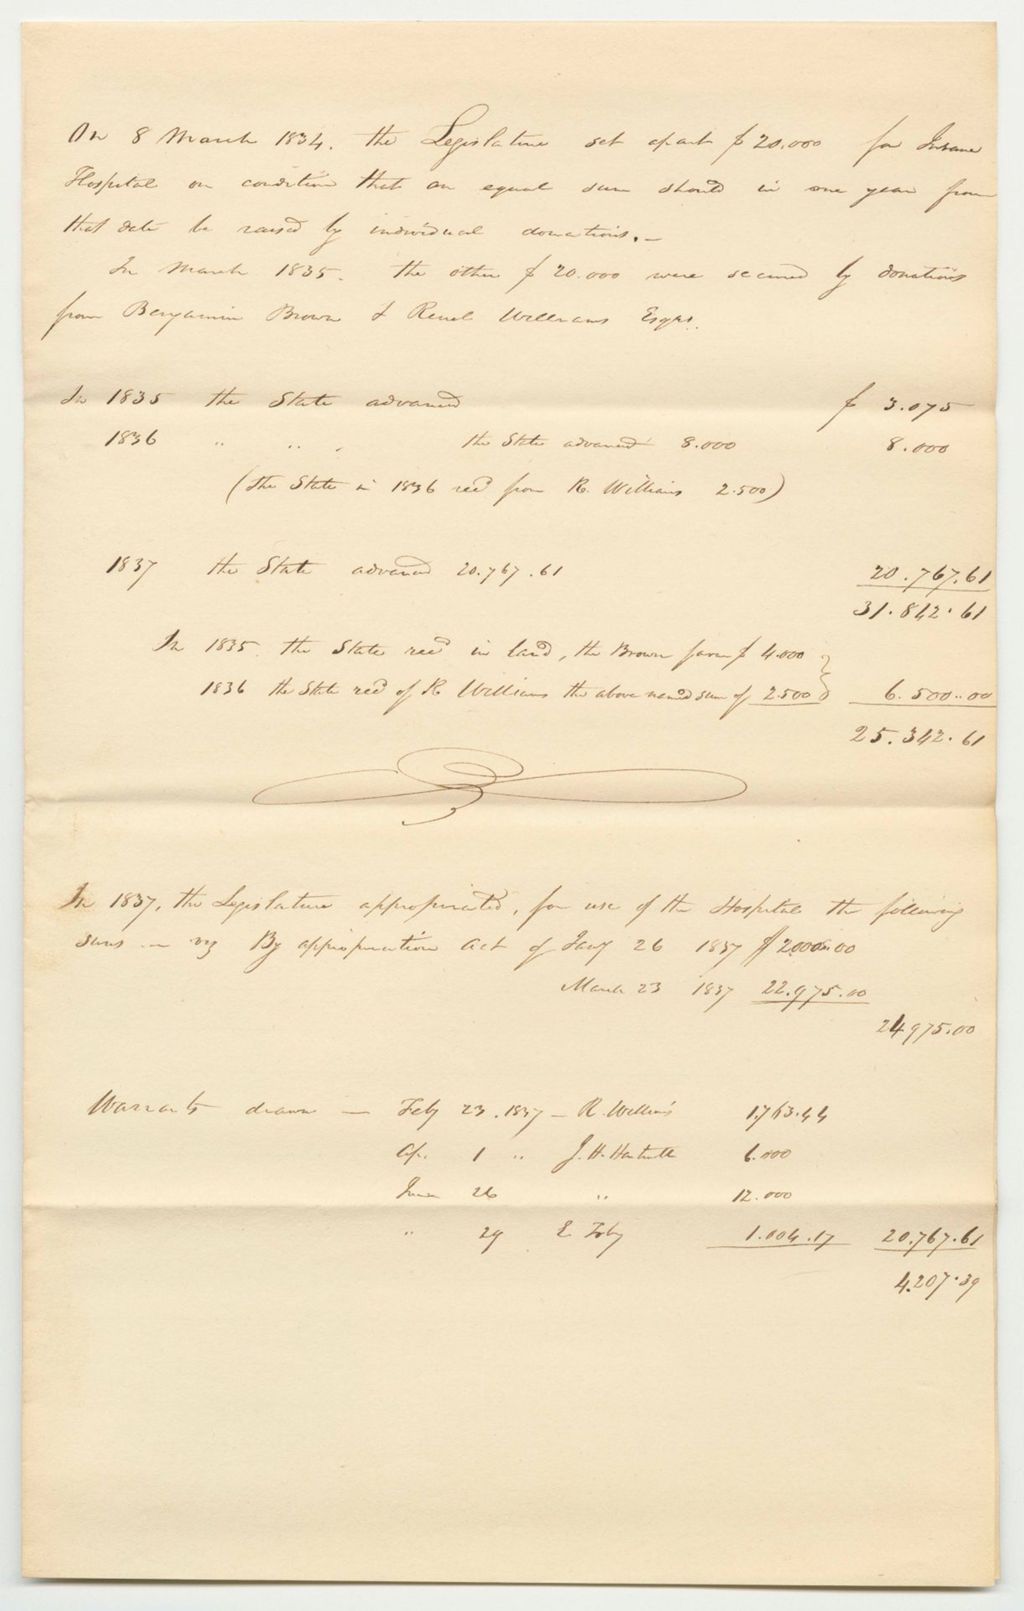 On 8 March 1834. the Legislature set apart $20.000 for Insane
Hospital on condition that an equal sum should in one year from
that date be raised by individual donations.—
In March 1835. the other $20.000 were secured by donations
from Benjamin Brown & Reuel Williams Esqrs.
In 1835 the State advanced $ 3.075
1836 " " " the State advanced 8.000 8.000
(the State in 1836 recd from R. Williams 2.500)
1837 the State advanced 20.767.61 20.767.61
31.842.61
In 1835. the State recd in land, the Brown farm $ 4.000
1836 the State recd of R Williams the above named sum of 2.500 6.500..00
25.342.61
In 1837, the Legislature appropriated, for use of the Hospital the following
sums — viz By appropriation Act of Jany 26 1837 $2000.00
March 23 1837 22.975.00
24975.00
Warrants drawn — Feby 23. 1837 — R. Williams 1.763.44
Ap. 1 " J. H. Hartwell 6.000
June 26 " 12.000
" 29 E Toby 1.004.17 20.767.61
4.207.39